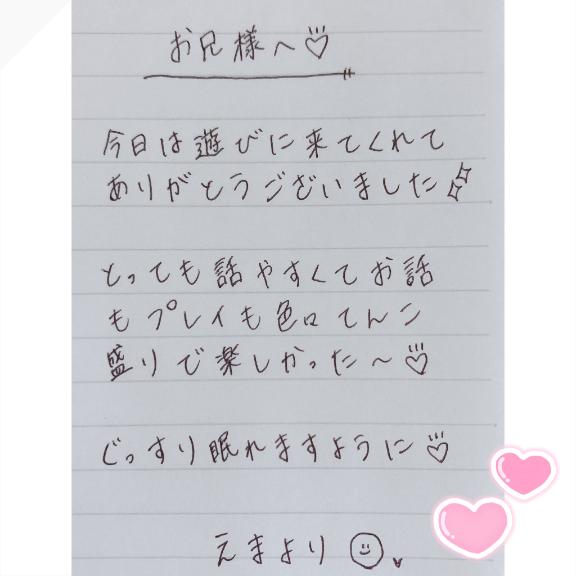 お兄様へ♡
今日は遊びに来てくれて
ありがとうございました
とっても話やすくてお話
もプレイも色ロてんこ
盛りで楽しかった～♡
ぐっすり眠れますように♡
えまより